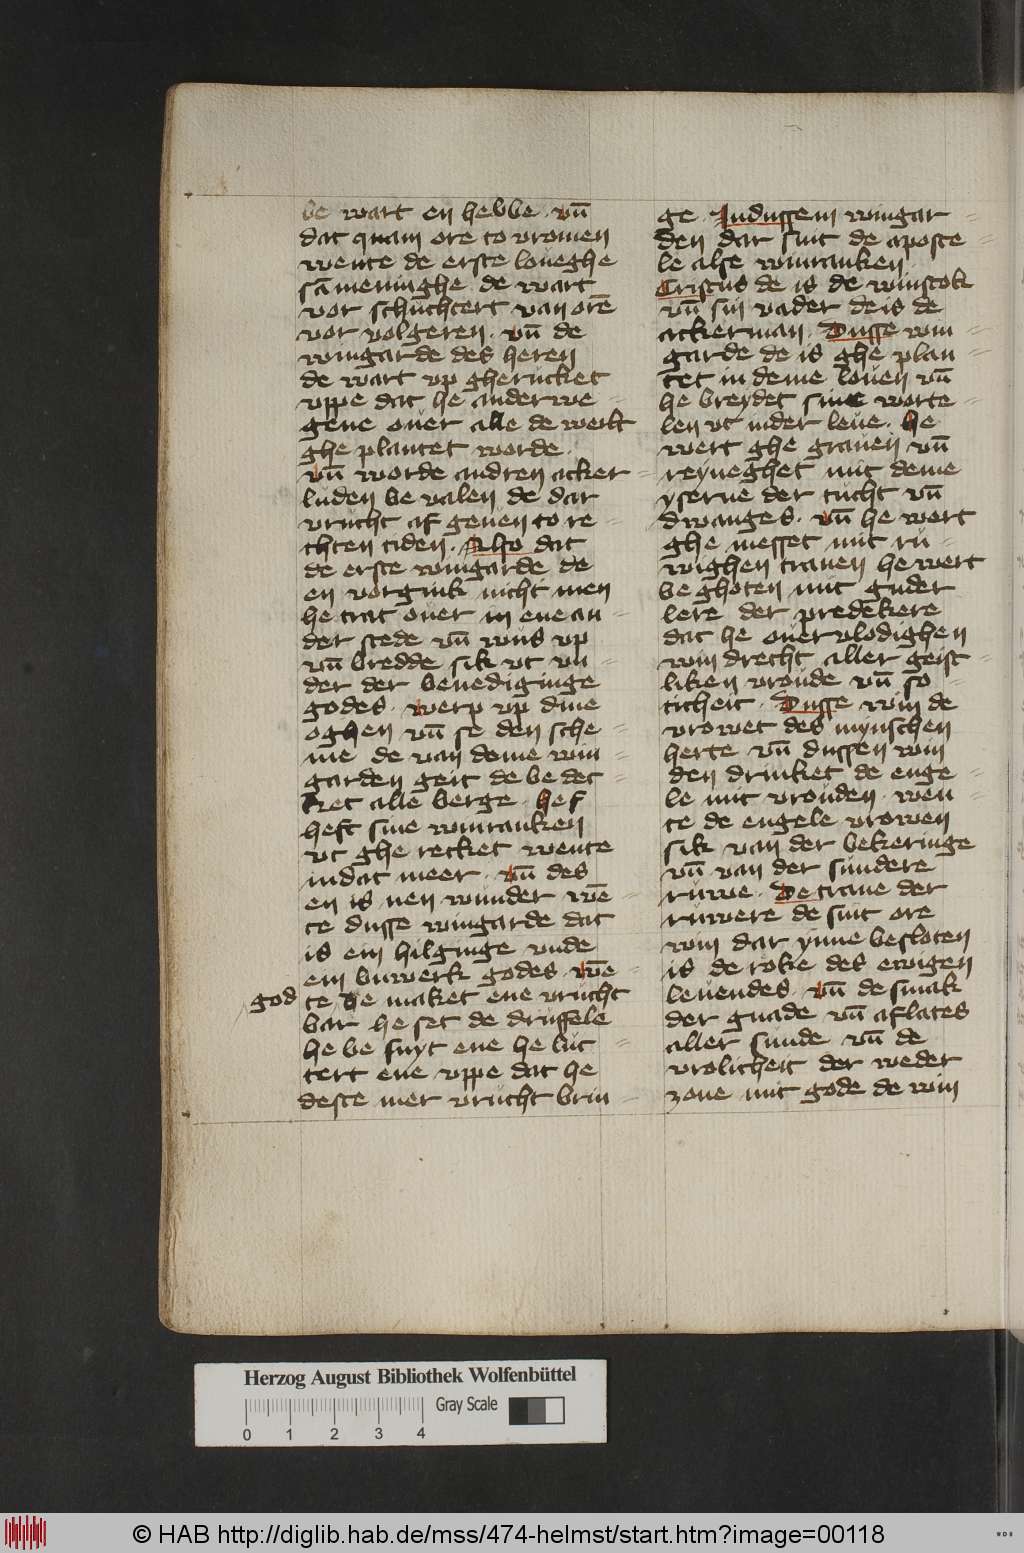 be wart en hebbe · vn̄
dat quam ore to vromen
wente de erste loueghe
sāmeninghe de wart
vor schuchtert van orē
vor volgeren · vn̄ de
wingarde des heren
de wart vp gherucket
vppe dat he anderwe-
gene ouer alle de werlt
ghe plantet worde ·
vn̄ worde andren acker=
luden be valen de dar
vrucht af geuen to re=
chten tiden · Also dat
de erste wingarde de
en vorgink nicht men
he trat ouer in ene an=
der stede vn̄ wus vp
vn̄ bredde sik vt vn=
der der benediginge
godes · werp vp dine
oghen vn̄ se den sche=
me de van deme win=
garden geit de be dec=
ket alle berge · hef
heft sine winranken
vt ghe recket wente
in dat meer · vn̄ des
en is nen wunder wē=
te dusse wingarde dat
is ein hilginge vnde
ein buwerk godes · wē=
god te he maket ene vrucht
bar he set de druffele
he be snyt ene he luc=
tert ene vppe dat he
deste mer vrucht brin=
ge · In dussem wingar=
den dar sint de aposte=
le alse winranken
Cristus de is de winstok
vn̄ sin vader de is de
ackerman · Dusse win=
garde de is ghe plan=
tet in deme louen vn̄
he breydet sine worte=
len vt in der leue · he
wert ghe grauen vn̄
reyneghet mit deme
yserne der tucht vn̄
dwanges · vn̄ he wert
ghe messet mit ru=
wighen tranen he wert
be ghoten mit guder
lere der predekere
dat he ouer vlodighen
win drecht aller geist=
liken vroude vn̄ so=
ticheit · Dusse win de
vrowet des mynschen
herte vn̄ dussen win
den drinket de enge=
le mit vrouden · wen=
te de engele vrowen
sik van der bekeringe
vn̄ van der sundere
ruwe · De trane der
ruwere de sint ore
win dar ynne besloten
is de roke des ewigen
leuendes · vn̄ de smak
der gnade vn̄ aflates
aller sunde vn̄ de
vrolicheit der weder
zone mit gode de win
Herzog August Bibliothek Wolfenbüttel
Gray Scale
0 1 2 3 4
© HAB http://diglib.hab.de/mss/474-helmst/start.htm?image=00118